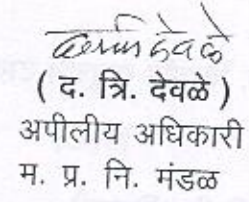 ( द. त्रि. देवळे )
अपीलीय अधिकारी
म. प्र. नि. मंडळ